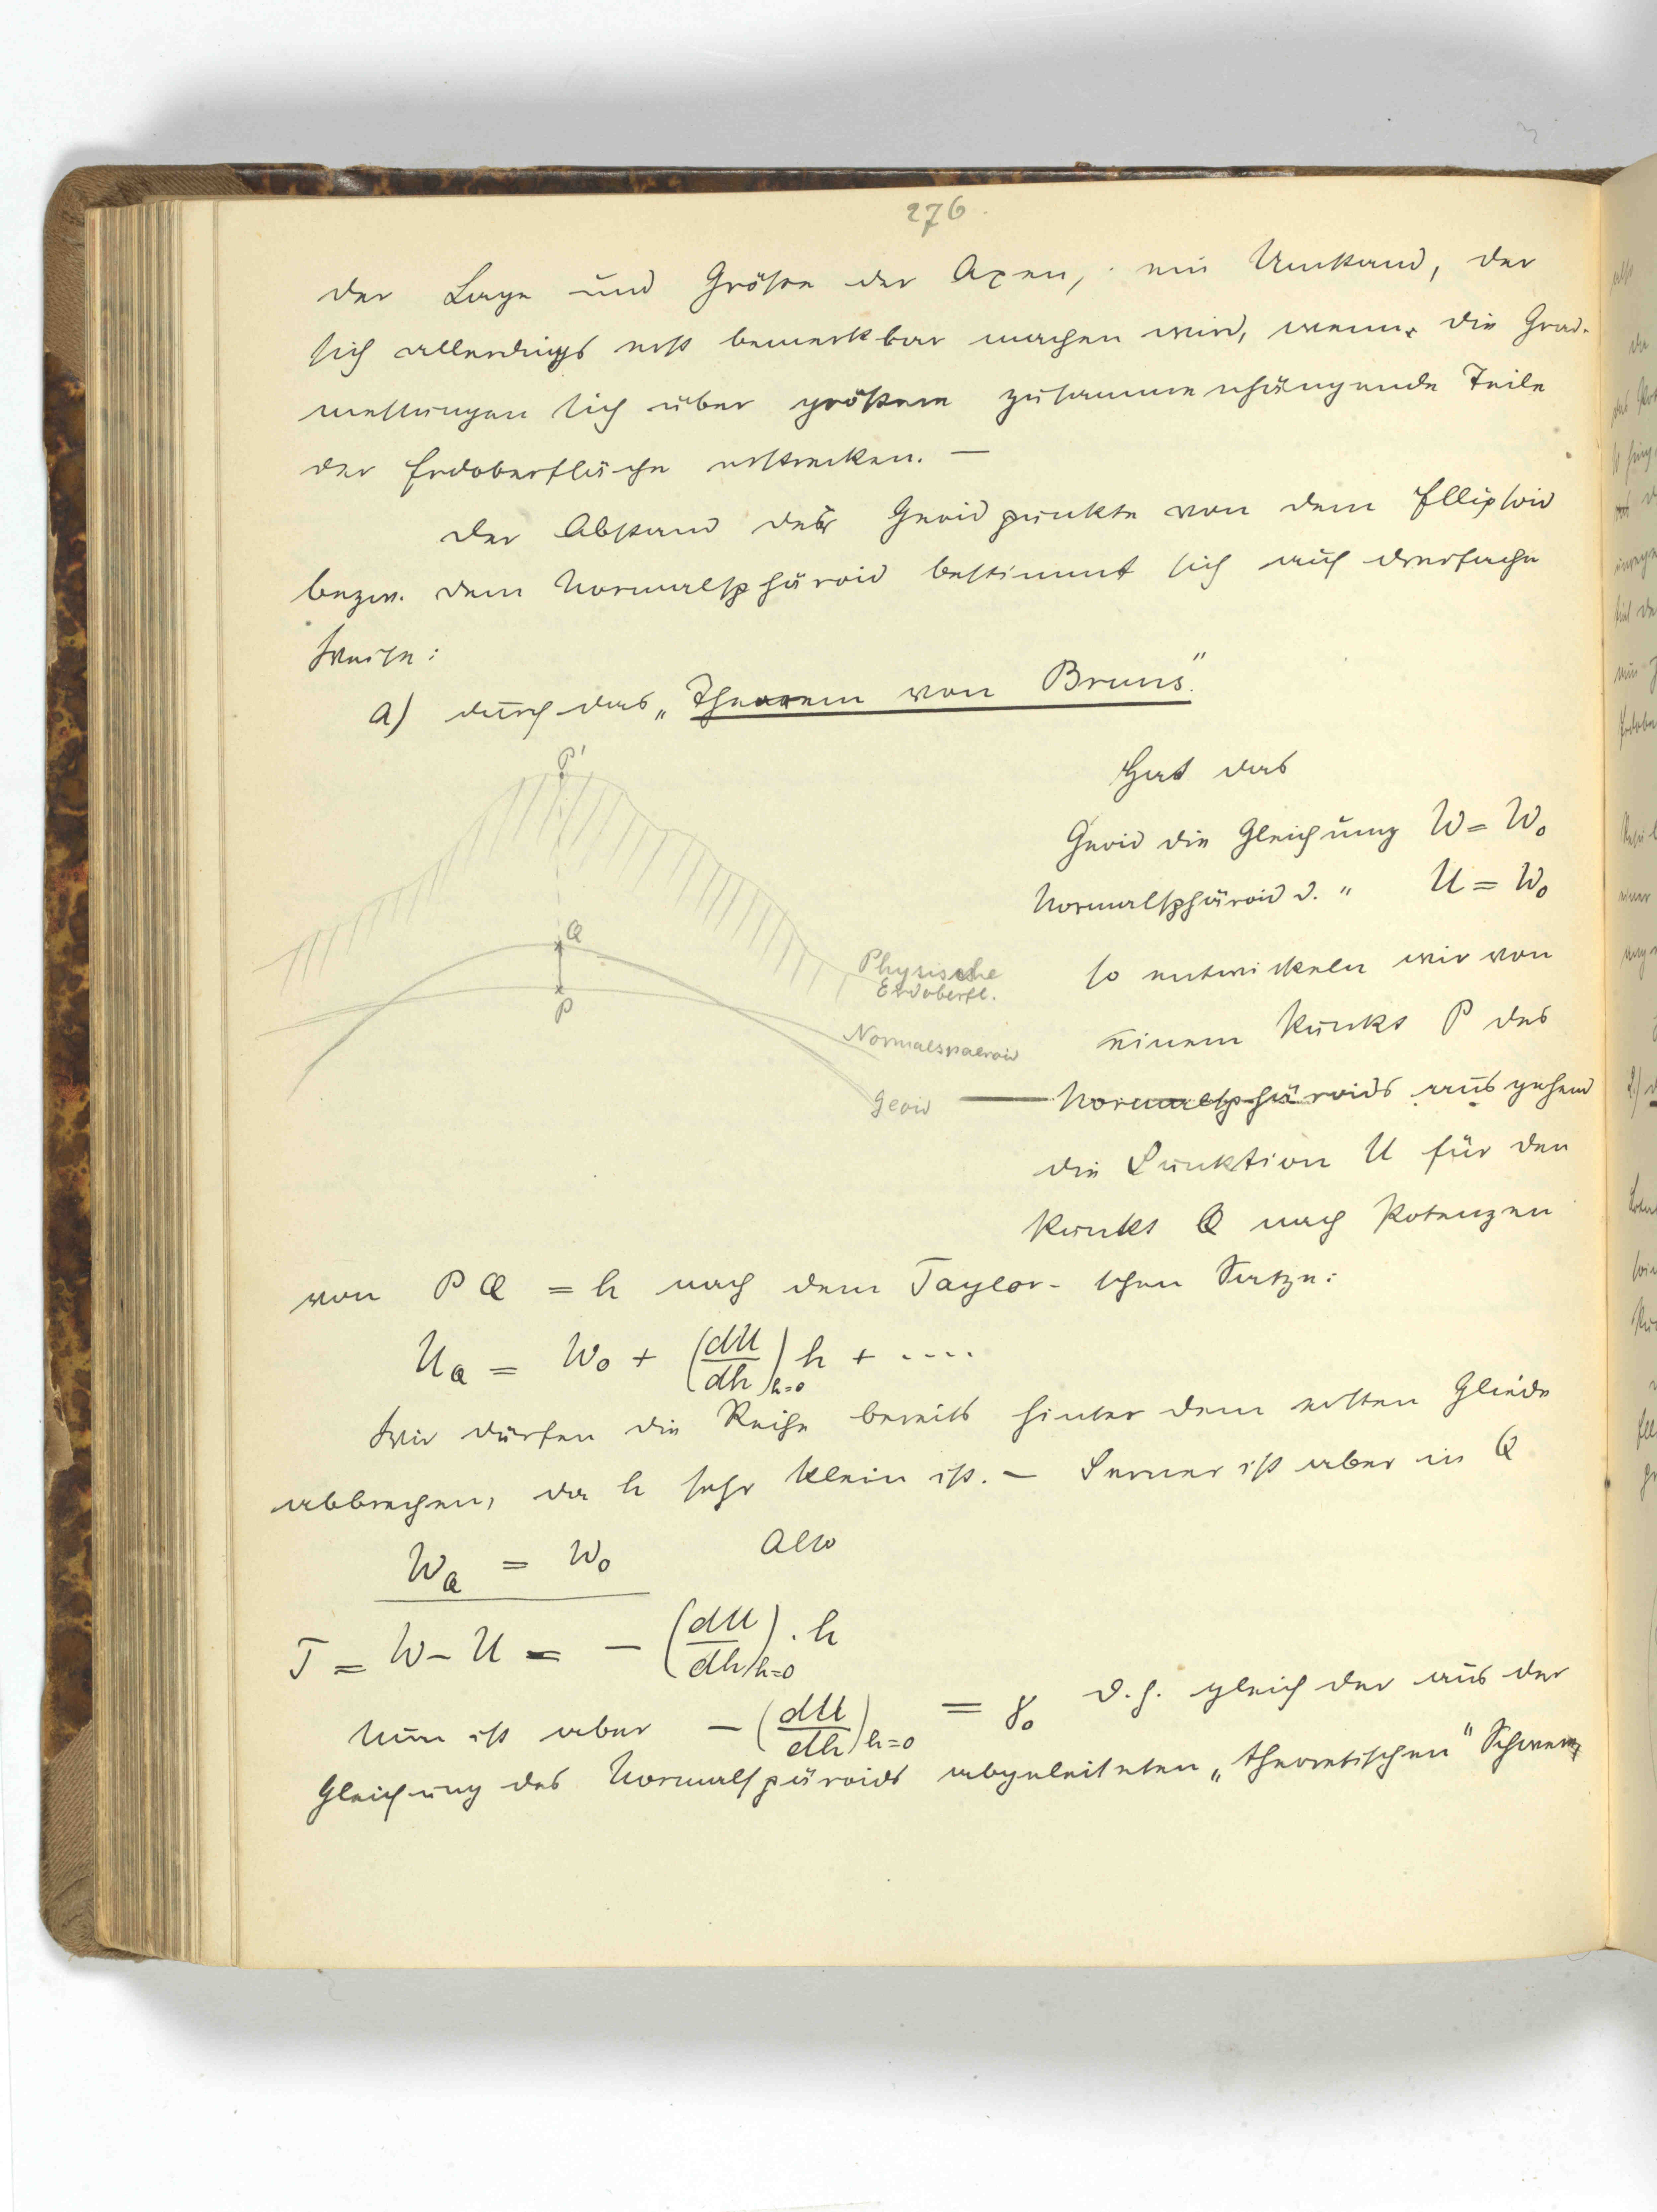 276.
der Lage und Größe der Axen, ein Umstand, der
sich allerdings erst bemerkbar machen wird, wenn die Grad-
messungen sich über größere zusammenhängende Teile
der Erdoberfläche erstrecken. —
Der Abstand der Geoidpunkte von dem Ellipsoid
bezw. dem Normalsphäroid bestimmt sich auf dreifache
Weise:
a) durch das „Theorem von Bruns".
P'
Q
P
Physische
Erdoberfl.
Normalspaeroid
Geoid
Hat das
Geoid die Gleichung W = W₀
Normalsphäroid d. " U = W₀
so entwickeln wir von
einem Punkt P des
Normalsphäroids ausgehend
die Funktion U für den
Punkt Q nach Potenzen
von PQ = h nach dem Taylor-schen Satze:
U_Q = W₀ + (dU/dh)_{h=0} h + ....
Wir dürfen die Reihe bereits hinter dem ersten Gliede
abbrechen, da h sehr klein ist. — Ferner ist aber in Q
W_Q = W₀ Also
T = W – U = – (dU/dh)_{h=0} . h
Nun ist aber – (dU/dh)_{h=0} = γ₀ d.h. gleich der aus der
Gleichung des Normalspäroids abgeleiteten „theoretischen" Schwere